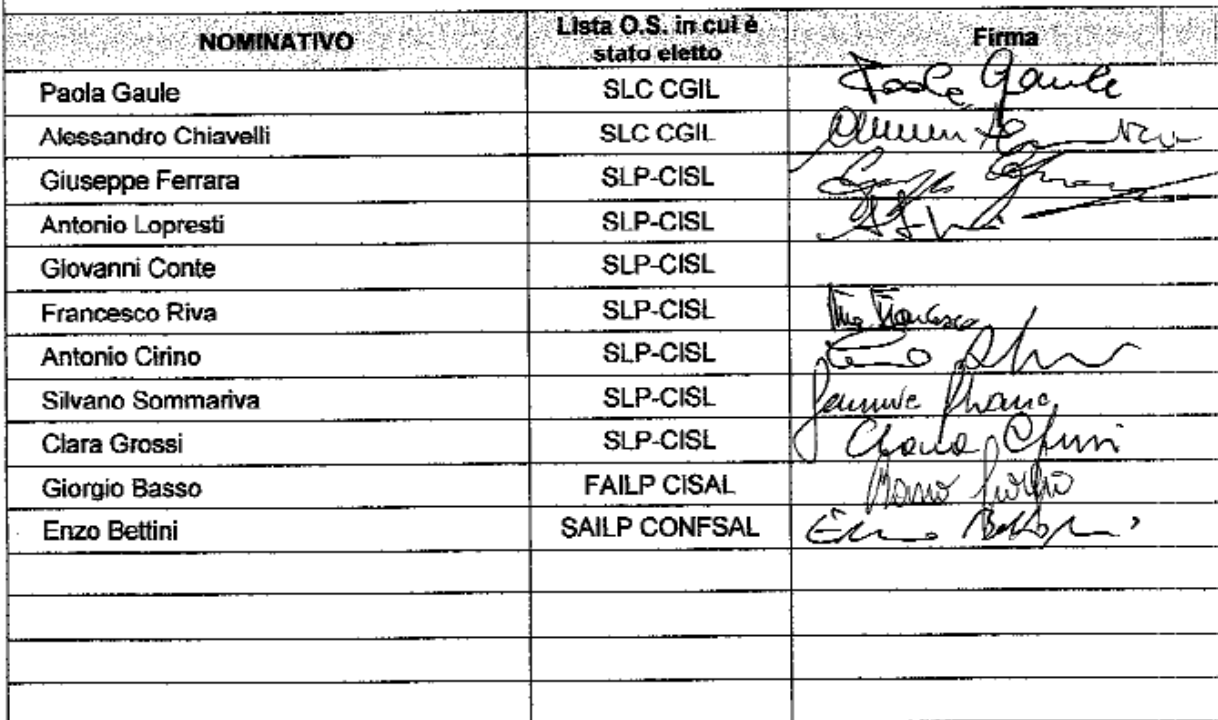 NOMINATIVO Lista O.S. in cui è stato eletto Firma
Paola Gaule SLC CGIL Paola Gaule
Alessandro Chiavelli SLC CGIL
Giuseppe Ferrara SLP-CISL
Antonio Lopresti SLP-CISL
Giovanni Conte SLP-CISL
Francesco Riva SLP-CISL Riva Francesco
Antonio Cirino SLP-CISL
Silvano Sommariva SLP-CISL
Clara Grossi SLP-CISL Clara Grossi
Giorgio Basso FAILP CISAL Basso Giorgio
Enzo Bettini SAILP CONFSAL Enzo Bettini